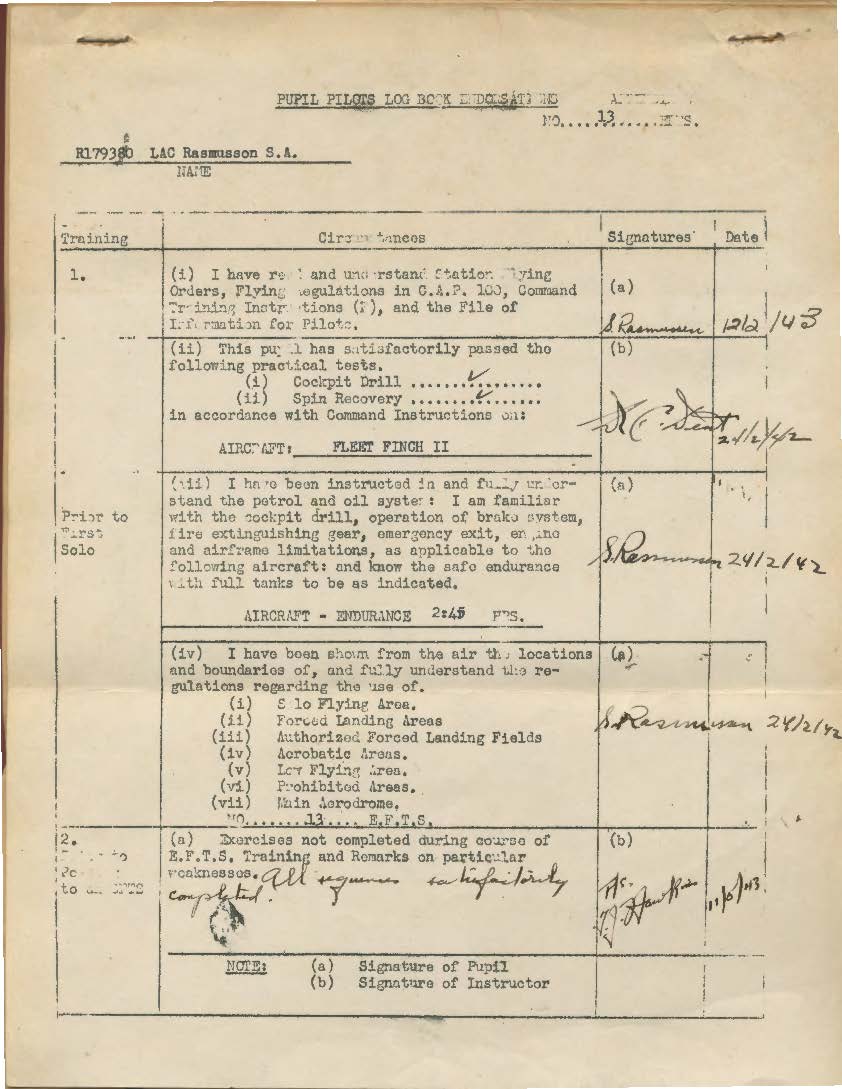 PUPIL PILOTS LOG BOOK ENDORSATIONS
NO.....13......EFTS.
R179380 LAC Rasmusson S.A.
NAME
Training Circumstances Signatures Date
1. (i) I have read and understand Station Flying
Orders, Flying Regulations in C.A.P. 100, Command (a)
Training Instructions (F), and the File of
Information for Pilots. S. Rasmussen 12/2/43
(ii) This pupil has satisfactorily passed the (b)
following practical tests.
(i) Cockpit Drill ..................
(ii) Spin Recovery .................
in accordance with Command Instructions on:
AIRCRAFT: FLEET FINCH II 24/2/42
(iii) I have been instructed in and fully under- (a)
stand the petrol and oil system: I am familiar
Prior to with the cockpit drill, operation of brake system,
First fire extinguishing gear, emergency exit, engine
Solo and airframe limitations, as applicable to the S. Rasmussen 24/2/42
following aircraft: and know the safe endurance
with full tanks to be as indicated.
AIRCRAFT - ENDURANCE 2:45 HRS.
(iv) I have been shown from the air the locations (a)
and boundaries of, and fully understand the re-
gulations regarding the use of.
(i) Solo Flying Area.
(ii) Forced Landing Areas S. Rasmussen 24/2/42
(iii) Authorized Forced Landing Fields
(iv) Acrobatic Areas.
(v) Low Flying Area.
(vi) Prohibited Areas.
(vii) Main Aerodrome.
NO........13..... E.F.T.S.
2. (a) Exercises not completed during course of (b)
E.F.T.S. Training and Remarks on particular
weaknesses. All sequences satisfactorily
completed.
NOTE: (a) Signature of Pupil
(b) Signature of Instructor